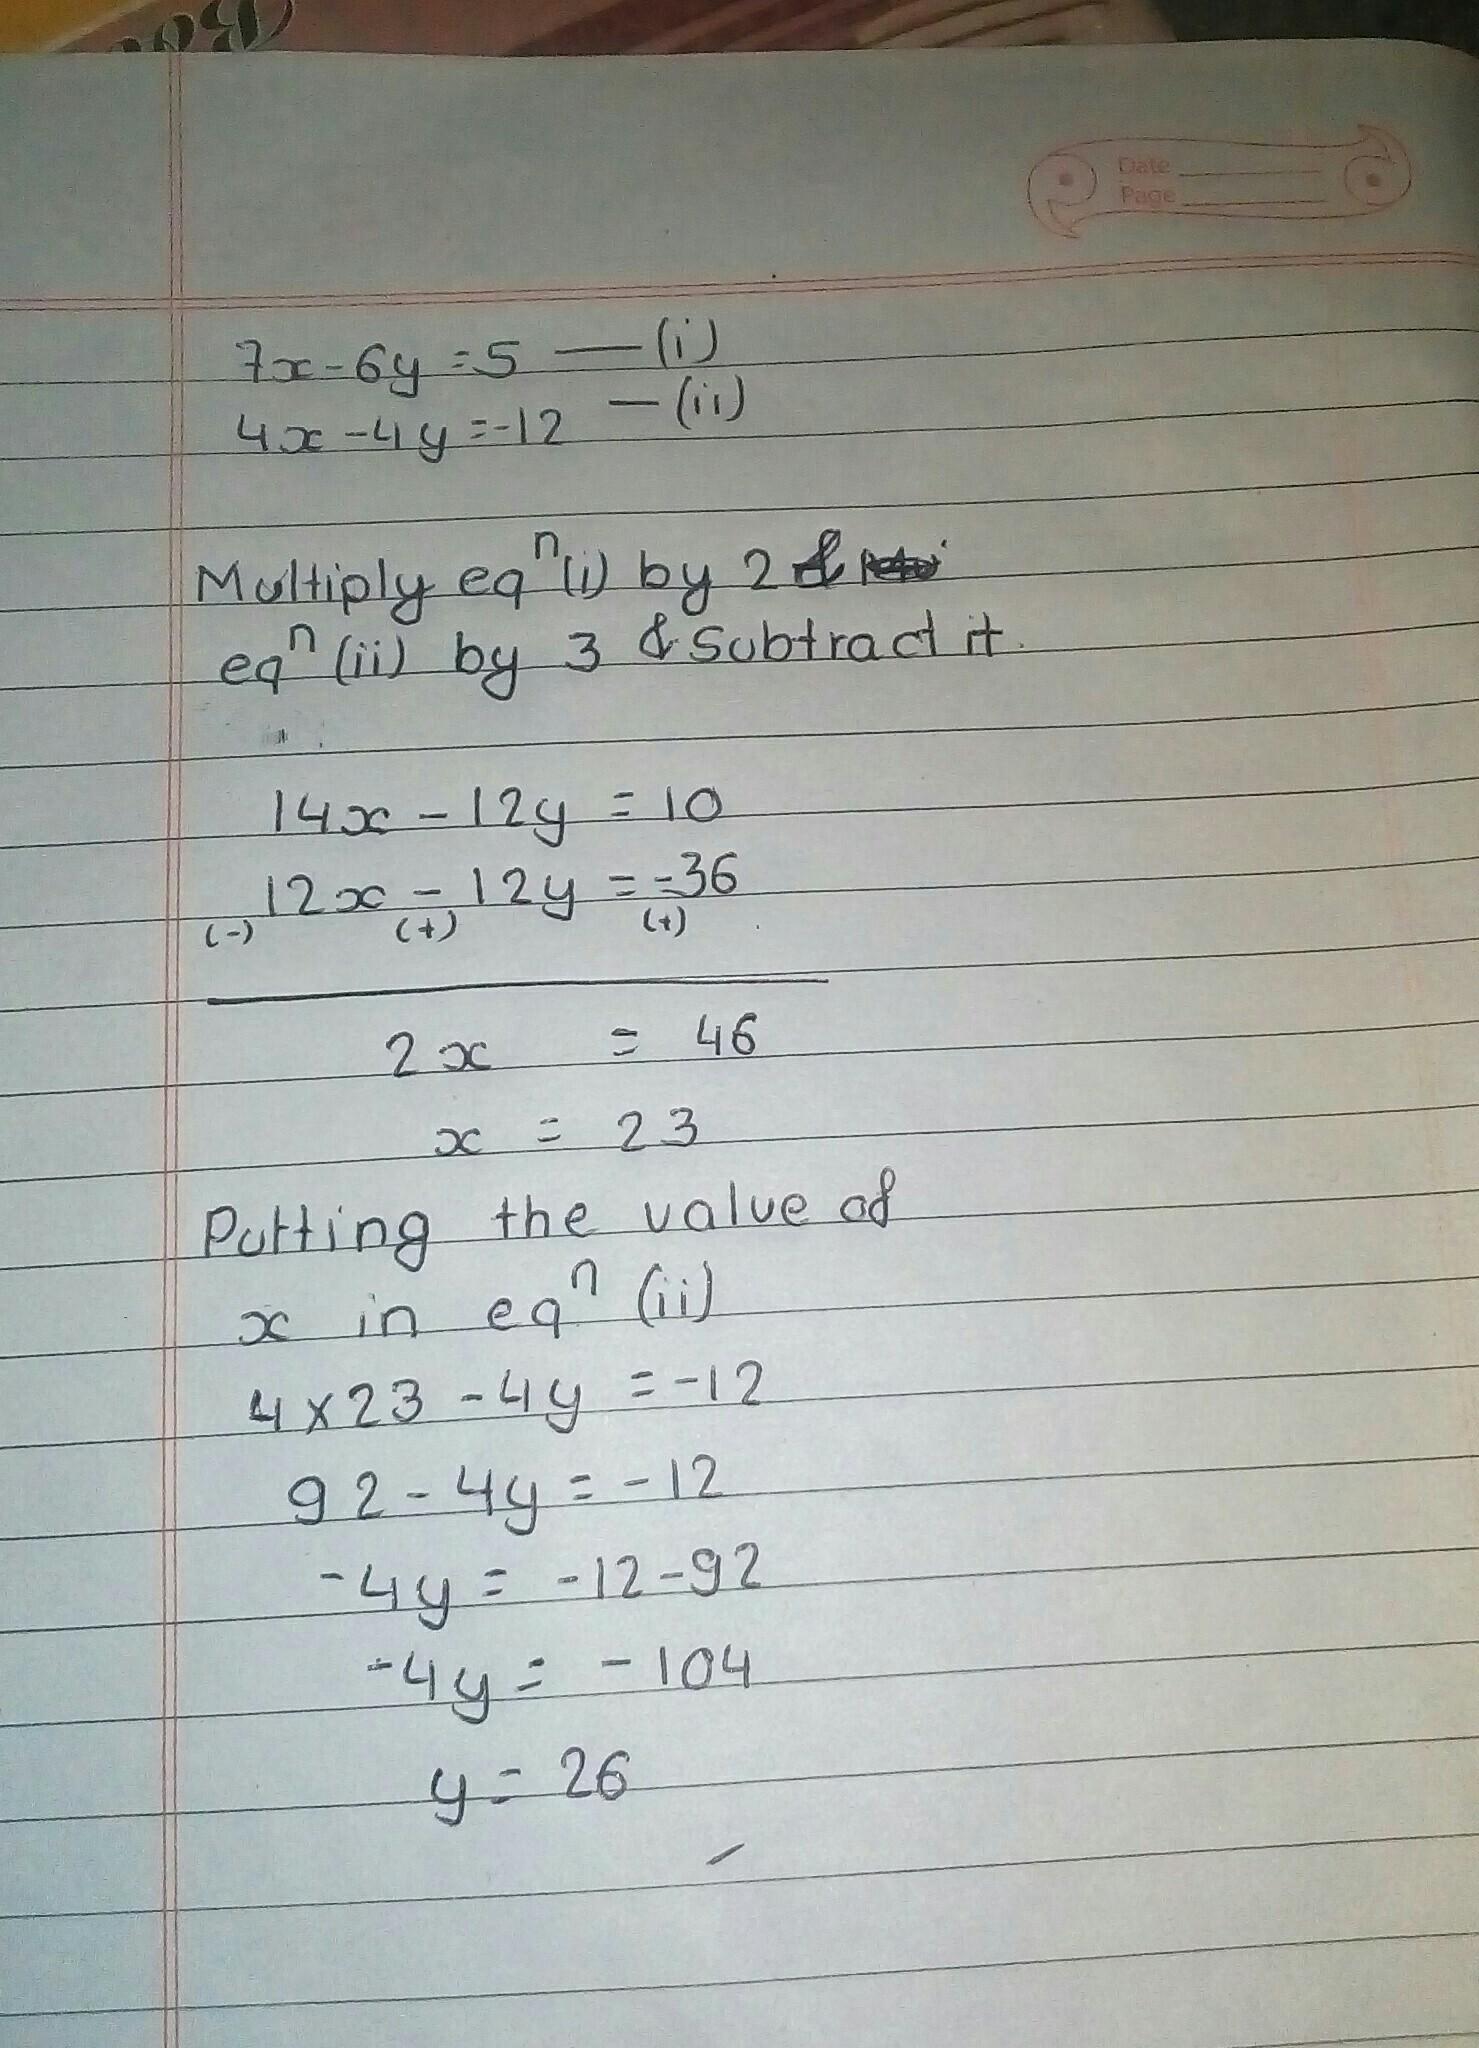 Boo
Date
Page
7x-6y=5 —(i)
4x-4y=-12 —(ii)
Multiply eqⁿ(i) by 2 &
eqⁿ (ii) by 3 & Subtract it.
14x - 12y = 10
12x - 12y = -36
(-) (+) (+)
2x = 46
x = 23
Putting the value of
x in eqⁿ (ii)
4x23 -4y = -12
92 - 4y = -12
-4y = -12-92
-4y = -104
y = 26